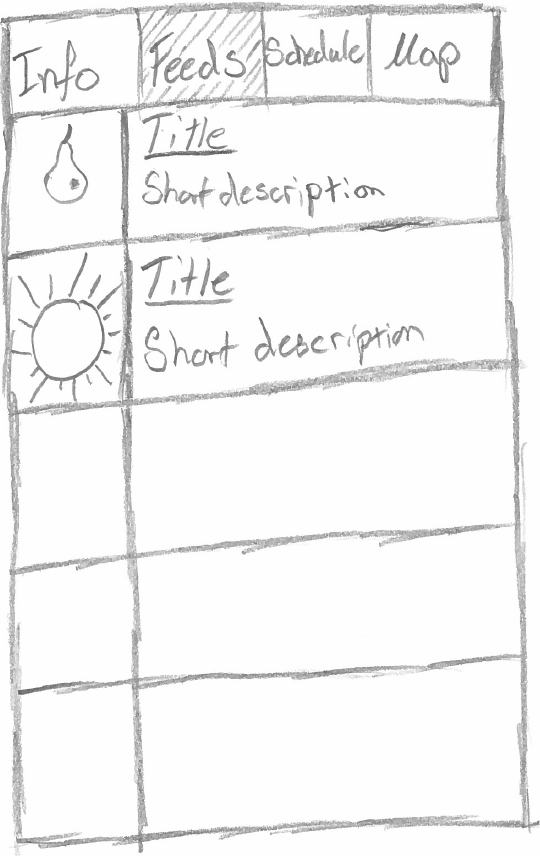 Info Feeds Schedule Map
Title
Short description
Title
Short description